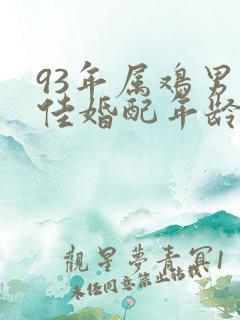 93年属鸡男
佳婚配年龄
觀星夢青冥1
未经同意禁止转载